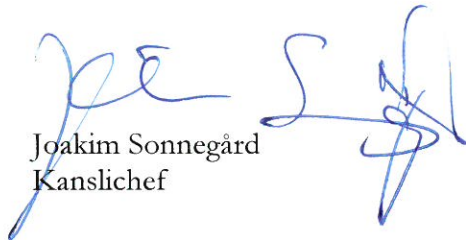 Joakim Sonnegård
Kanslichef